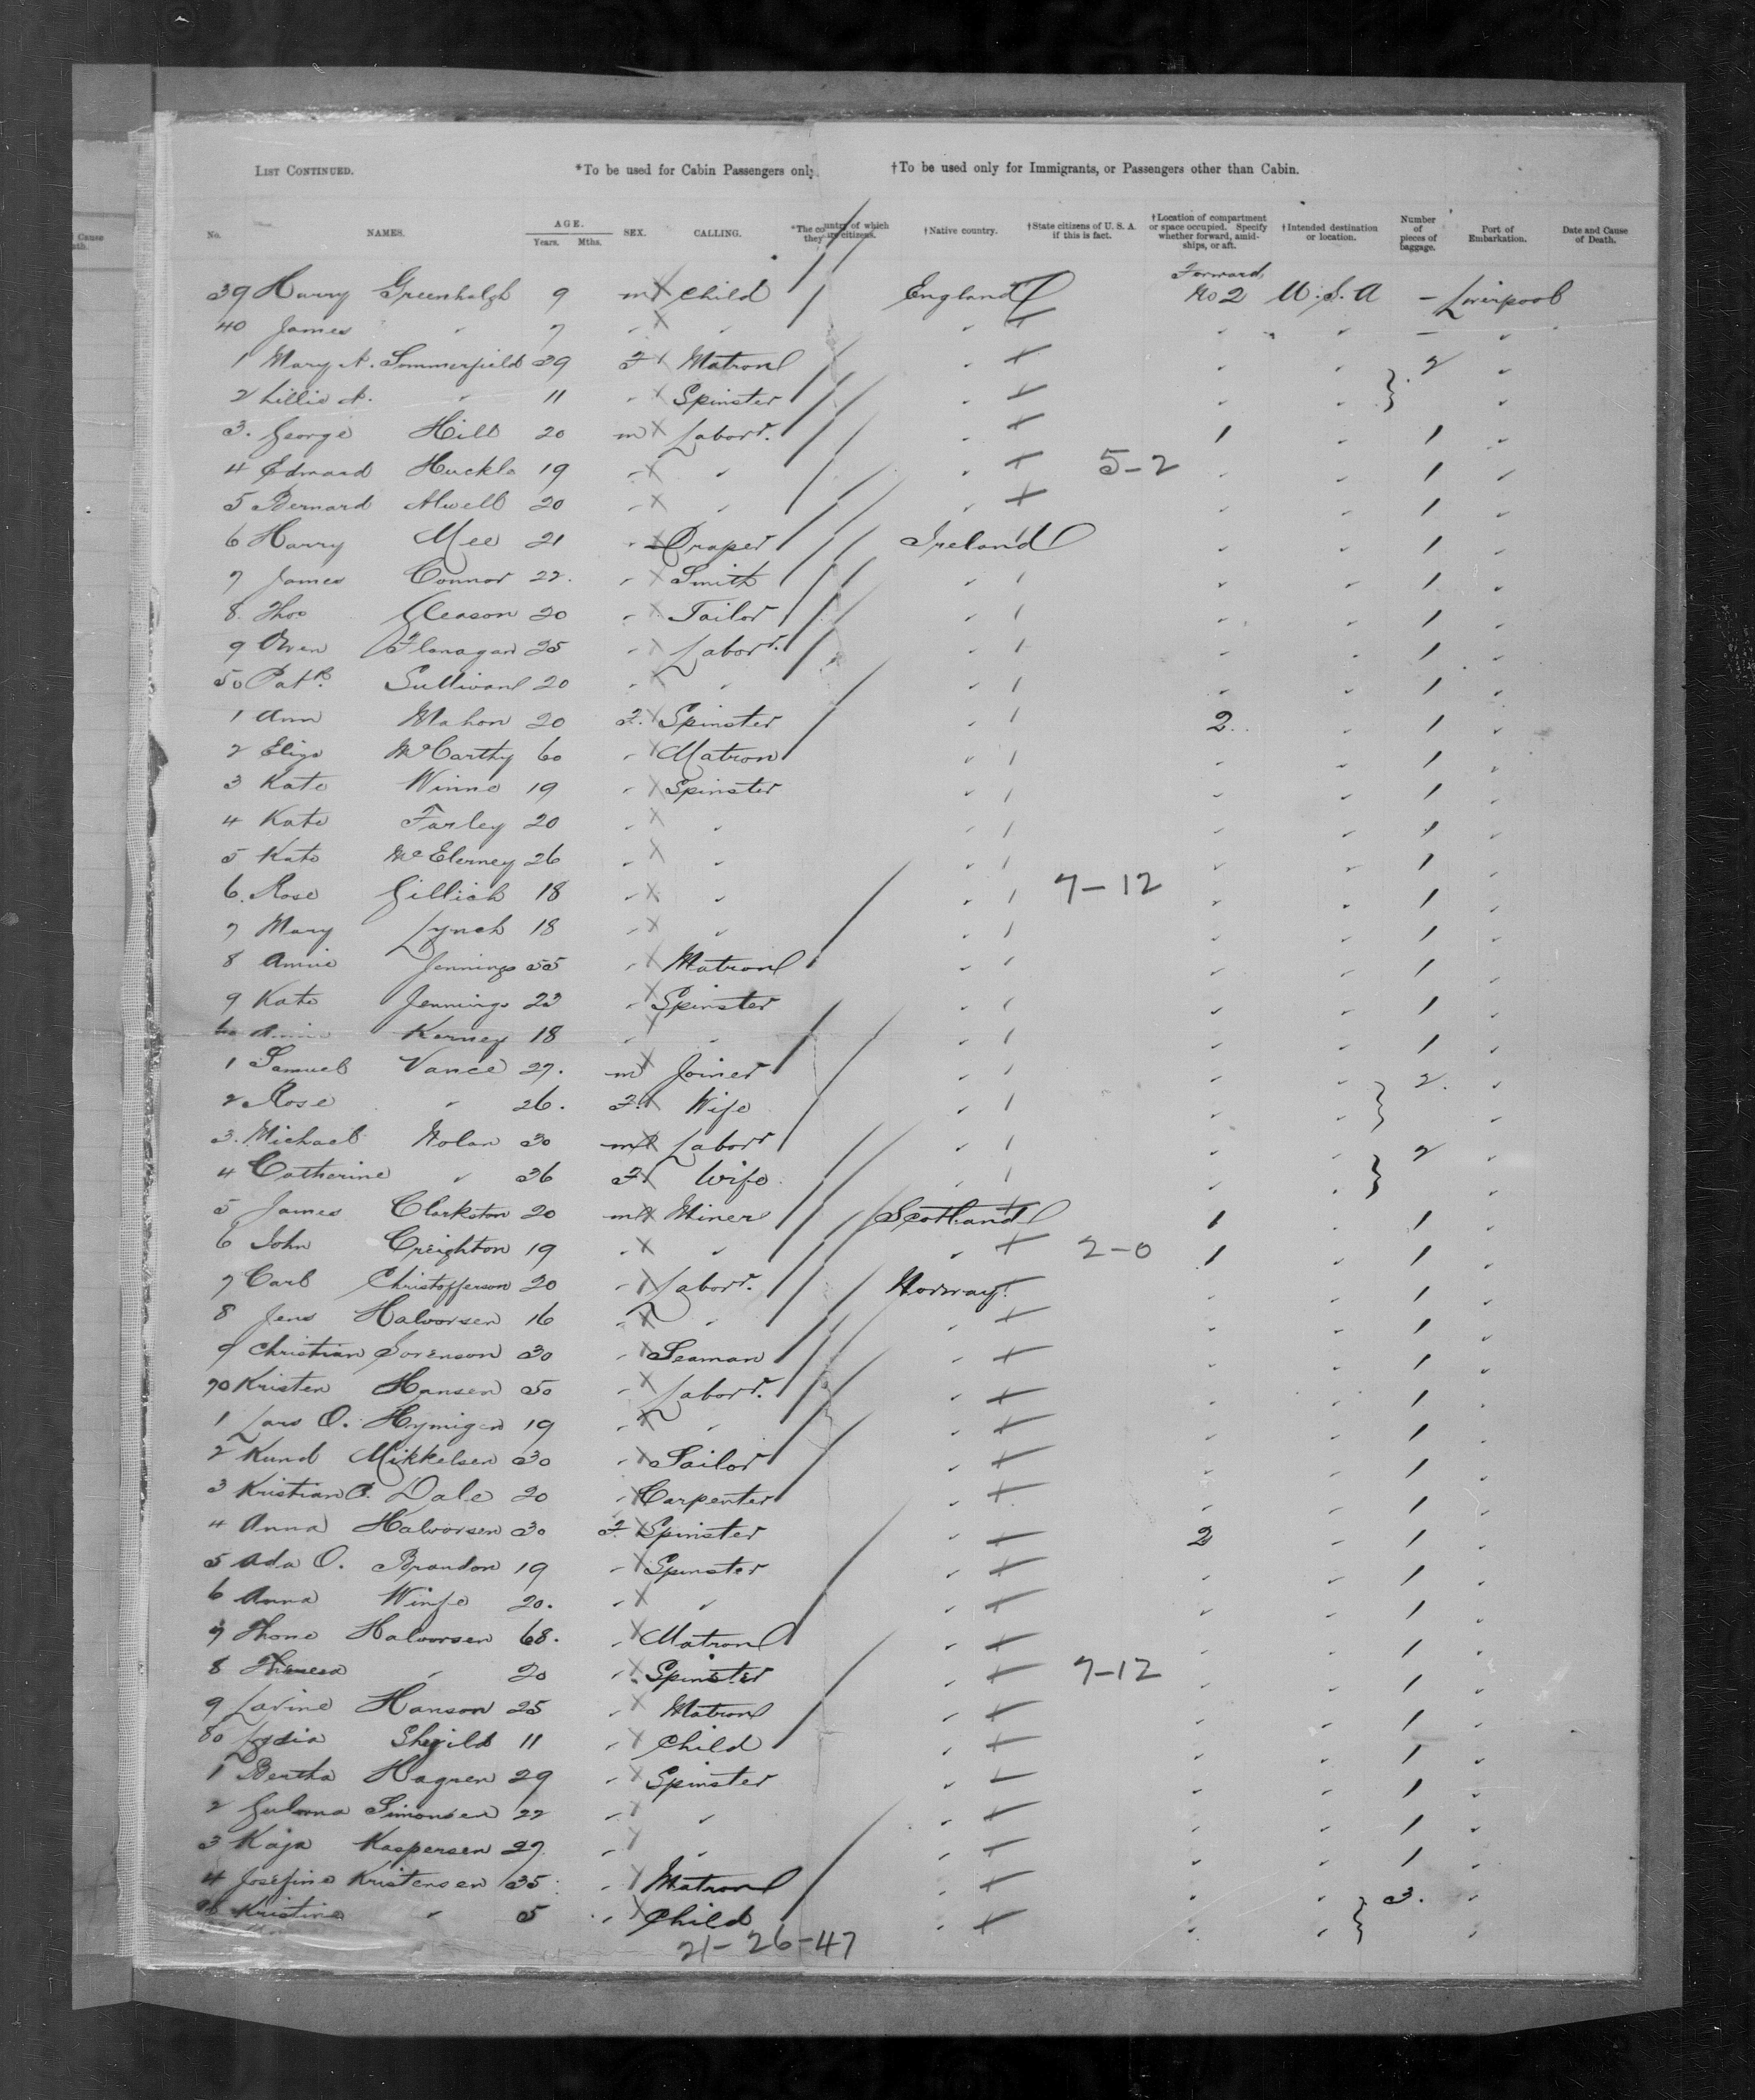 Cause
ath.
List Continued. *To be used for Cabin Passengers only. †To be used only for Immigrants, or Passengers other than Cabin.
No. NAMES. AGE. Years. Mths. SEX. CALLING. *The country of which they are citizens. †Native country. †State citizens of U. S. A. if this is fact. †Location of compartment or space occupied. Specify whether forward, amid-ships, or aft. †Intended destination or location. Number of pieces of baggage. Port of Embarkation. Date and Cause of Death.
39 Harry Greenhalgh 9 m Child England Forward No 2 U.S.A - Liverpool
40 James " 7 " " " " " - "
1 Mary A. Sommerfield 39 F Matron " " " 2 "
2 Lillie A. " 11 " Spinster " " " "
3. George Hill 20 m Labor. " 1 " 1 "
4 Edward Huckle 19 " " " 5-2 " " 1 "
5 Bernard Alwell 20 " " " " " 1 "
6 Harry Mee 21 " Draper Ireland " " 1 "
7 James Connor 22. " Smith " " " 1 "
8. Thos Gleason 20 " Tailor " " " 1 "
9 Owen Flanagan 25 " Labor. " " " 1 "
50 Patk. Sullivan 20 " " " " " 1 "
1 Ann Mahon 20 F. Spinster " 2. " 1 "
2 Eliza McCarthy 60 " Matron " " " 1 "
3 Kate Winne 19 " Spinster " " " 1 "
4 Kate Farley 20 " " " " " 1 "
5 Kate McElerney 26 " " " " " 1 "
6. Rose Gillich 18 " " " 7-12 " " 1 "
7 Mary Lynch 18 " " " " " 1 "
8 Annie Jennings 55 " Matron " " " 1 "
9 Kate Jennings 23 " Spinster " " " 1 "
60 Annie Kerney 18 " " " " " 1 "
1 Samuel Vance 27. m Joiner " " " 2. "
2 Rose " 26. F. Wife " " " "
3. Michael Nolan 30 m Labor " " " 2 "
4 Catherine " 26 F Wife " " " "
5 James Clarkston 20 m Miner Scotland 1 " 1 "
6 John Creighton 19 " " " 2-0 1 " 1 "
7 Carl Christofferson 20 " Labor. Norway. " " 1 "
8 Jens Halvorsen 16 " " " " " 1 "
9 Christian Sorenson 30 " Seaman " " " 1 "
70 Kristen Hansen 50 " Labor. " " " 1 "
1 Lars O. 19 " " " " " 1 "
2 Kund Mikkelsen 30 " Sailor " " " 1 "
3 Kristian C. Dale 20 " Carpenter " " " 1 "
4 Anna Halvorsen 30 F. Spinster " 2 " 1 "
5 Ada O. Brandon 19 " Spinster " " " 1 "
6 Anna Winje 20. " " " " " 1 "
7 Thone Halvorsen 68. " Matron " " " 1 "
8 Theresa " 20 " Spinster " 7-12 " " 1 "
9 Lavine Hanson 25 " Matron " " " 1 "
80 Lydia 11 " Child " " " 1 "
1 Bertha Hagnen 29 " Spinster " " " 1 "
2 Simonsen 22 " " " " " 1 "
3 Kaja Kaspersen 27. " " " " " 1 "
4 Josefine Kristensen 35 " Matron " " " 3. "
Kristine " 5 " Child " " " "
21-26-47